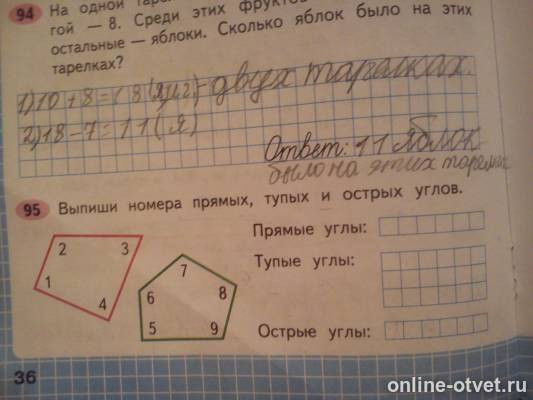 94 На одной
гой — 8. Среди этих фруктов
остальные — яблоки. Сколько яблок было на этих
тарелках?
1) 10 + 8 = 18 двух тарелках.
2) 18 - 7 = 11 (я)
Ответ: 11 яблок
было на этих
95 Выпиши номера прямых, тупых и острых углов.
Прямые углы:
2 3
7
Тупые углы:
1 4
6 8
5 9
Острые углы:
36
online-otvet.ru